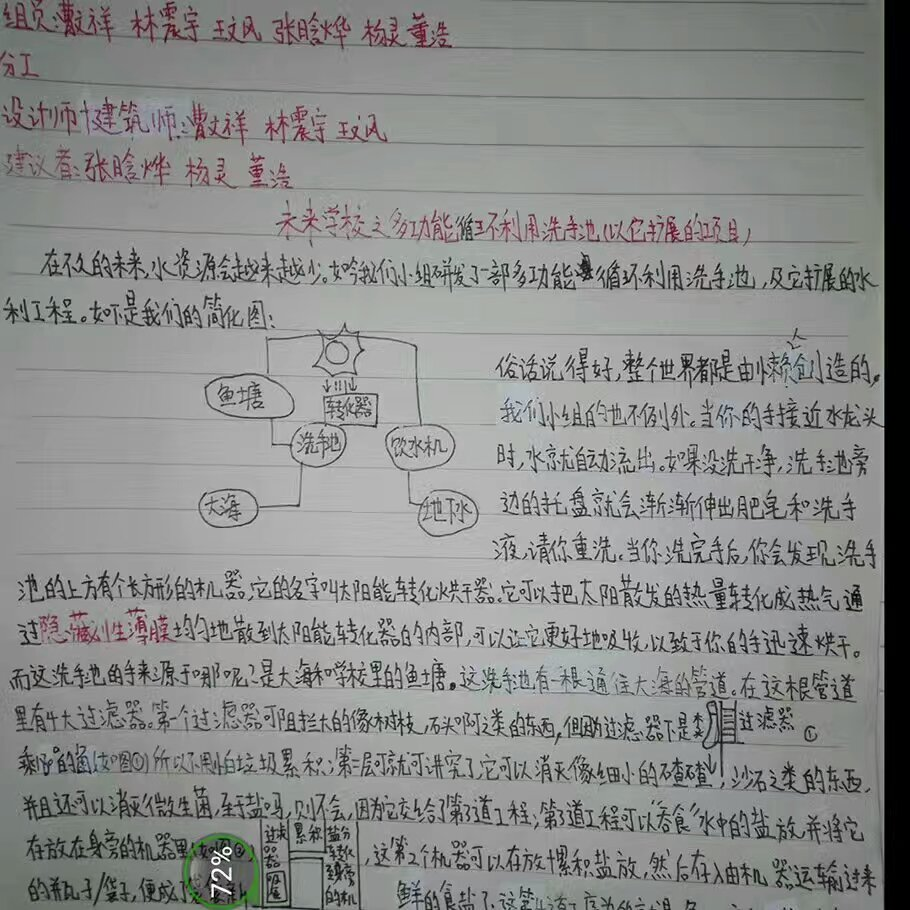 组员:曹文祥 林震宇 王文风 张晗烨 杨灵 董浩
分工
设计师+建筑师:曹文祥 林震宇 王文风
建议者:张晗烨 杨灵 董浩
未来学校之多功能循环利用洗手池(以它扩展的项目)
在不久的未来,水资源会越来越少。如今我们小组研发了一部多功能循环利用洗手池,及它扩展的水
利工程。如下是我们的简化图:
鱼塘
转化器
洗手池
饮水机
大海
地下水
俗话说得好,整个世界都是由懒人创造的。
我们小组的也不例外。当你的手接近水龙头
时,水就自动流出。如果没洗干净,洗手池旁
边的托盘就会渐渐伸出肥皂和洗手
液,请你重洗。当你洗完手后,你会发现洗手
池的上方有个长方形的机器,它的名字叫太阳能转化烘干器。它可以把太阳散发的热量转化成热气通
过隐藏刘性薄膜均匀地散到太阳能转化器的内部,可以让它更好地吸收,以致于你的手迅速烘干。
而这洗手池的手来源于哪呢?是大海和学校里的鱼塘。这洗手池有一根通往大海的管道。在这根管道
里有4大过滤器。第一个过滤器可阻拦大的像树枝,石头啊之类的东西,但过滤器下是类
过滤器 ①
剩的(如图①)所以不用怕垃圾累积;第二层可就可讲究了,它可以消灭像细小的碴碴,沙石之类的东西,
并且还可以消灭微生菌,至于盐吗,则不会,因为它交给了第3道工程,第3道工程可以“吞食”水中的盐放并将它
存放在身旁的机器里(如图②)
过滤器阻层
累积
盐分转化旁的机
,这第2个机器可以存放十累积盐放,然后存入由机器运输过来
的并瓦子/袋子,便成了
72%
鲜的食盐了,这第4道工序为